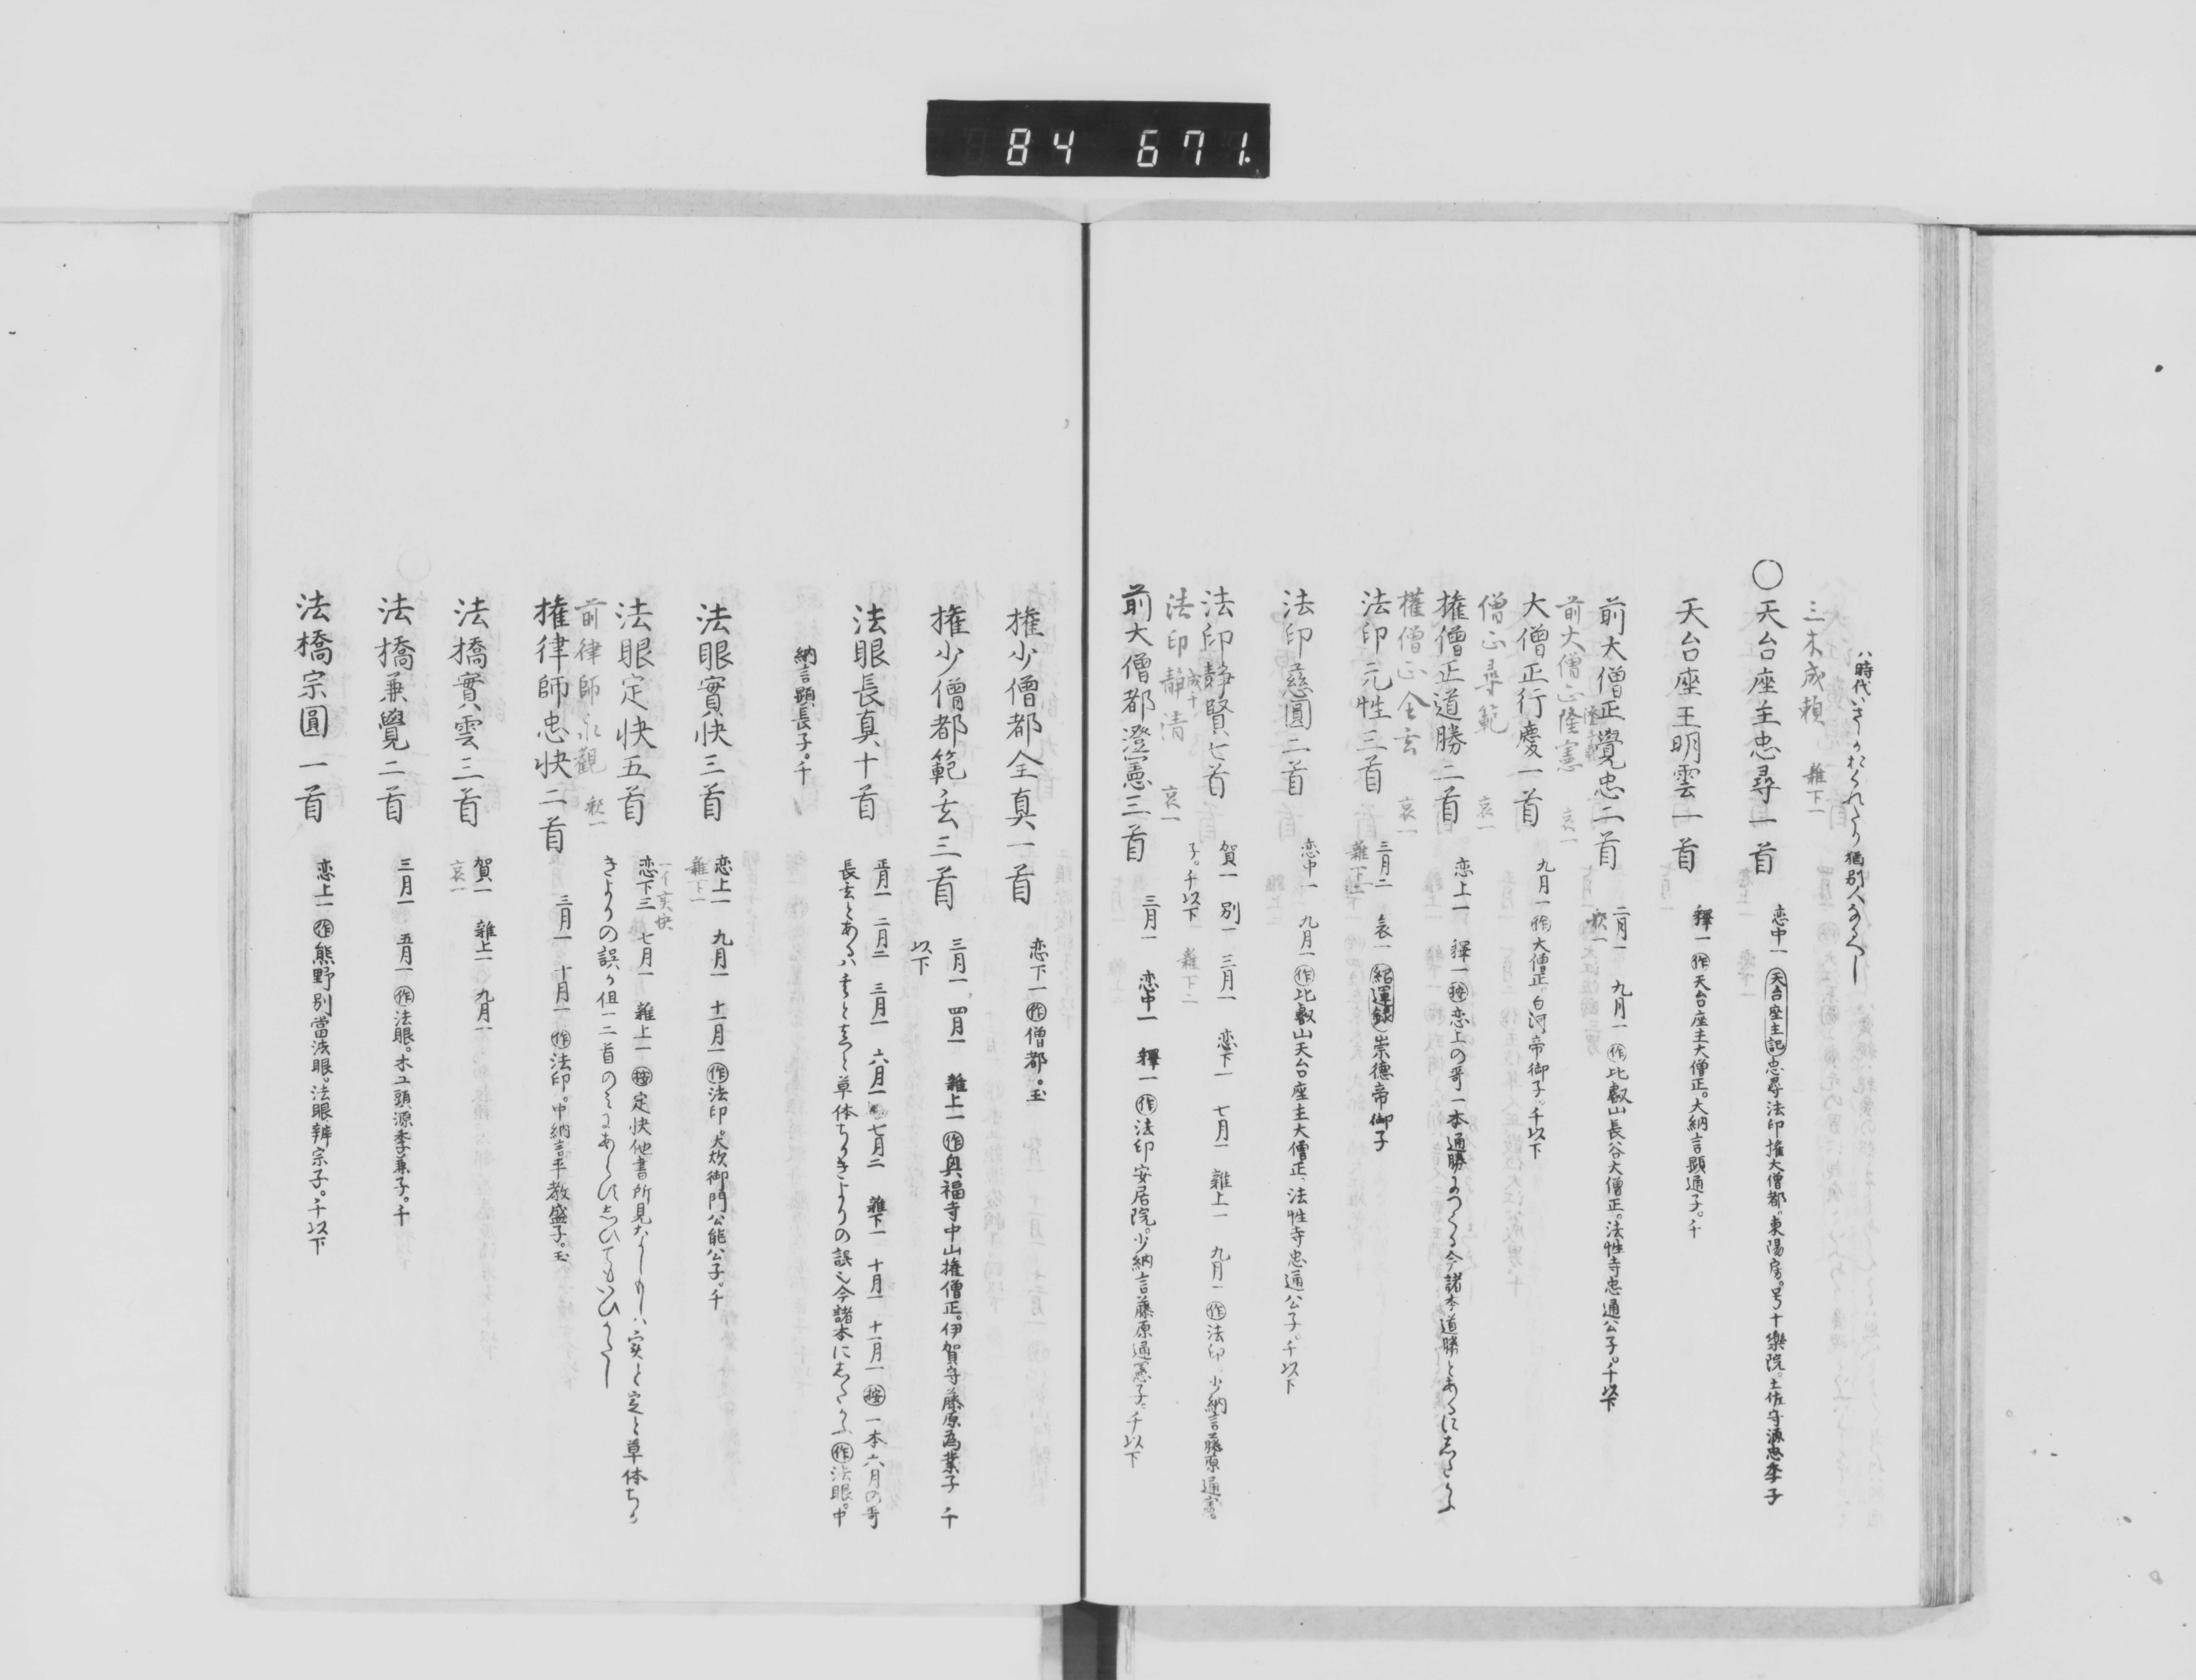 84 671.
ハ時代いさゝかおくれたり猶別人なるへし
三木成頼 雜下一
○天台座主忠尋一首 恋中一 天台座主記忠尋法印権大僧都。東陽房。号十樂院。土佐守源忠季子
天台座主明雲一首 釋一 作天台座主大僧正。大納言顕通子。千
前大僧正覺忠二首 二月一 九月一 作比叡山長谷大僧正。法性寺忠通公子。千以下
秋一
前大僧正隆憲 哀一
大僧正行慶一首 九月一 作大僧正。白河帝御子。千以下
僧正尋範 哀一
権僧正道勝二首 恋上一 釋一 按恋上の哥一本通勝につくる今諸本道勝とあるにしたかふ
権僧正全玄 哀一
法印元性三首 三月二 哀一 紹運録崇徳帝御子
雜下二
法印慈圓二首 恋中一 九月一 作比叡山天台座主大僧正、法性寺忠通公子。千以下
法印静賢七首 賀一 別一 三月一 恋下一 七月一 雜上一 九月一 作法印。少納言藤原通憲。
子。千以下 雜下二
法印静清 哀一
成千
前大僧都澄憲三首 三月一 恋中一 釋一 作法印安居院。少納言藤原通憲子。千以下
権少僧都全真一首 恋下一 作僧都。玉
権少僧都範玄三首 三月一 四月一 雜上一 作奥福寺中山権僧正。伊賀守藤原為業子 千
以下
法眼長真十首 正月一 二月二 三月一 六月一 七月二 雜下一 十月一 十一月一 按一本六月の哥
長玄とあるハ まと 草体ちかきよりの誤也今諸本にしたかふ 作法眼。中
納言顕長子。千
法眼實快三首 恋上一 九月一 十一月一 作法印。大炊御門公能公子。千
雜下一
一イ実快
法眼定快五首 恋下三 七月一 雜上一 按定快他書所見なしもしハ実と定と草体ちか
きよりの誤か但一二首のみにあらねはしひてもいひかたし
前律師永觀 秋一
権律師忠快二首 三月一 十月一 作法印。中納言平教盛子。玉
法橋實雲三首 賀一 雜上一 九月一
哀一
法橋兼覺二首 三月一 五月一 作法眼。木工頭源季兼子。千
法橋宗圓一首 恋上一 作熊野別當法眼。法眼辨宗子。千以下